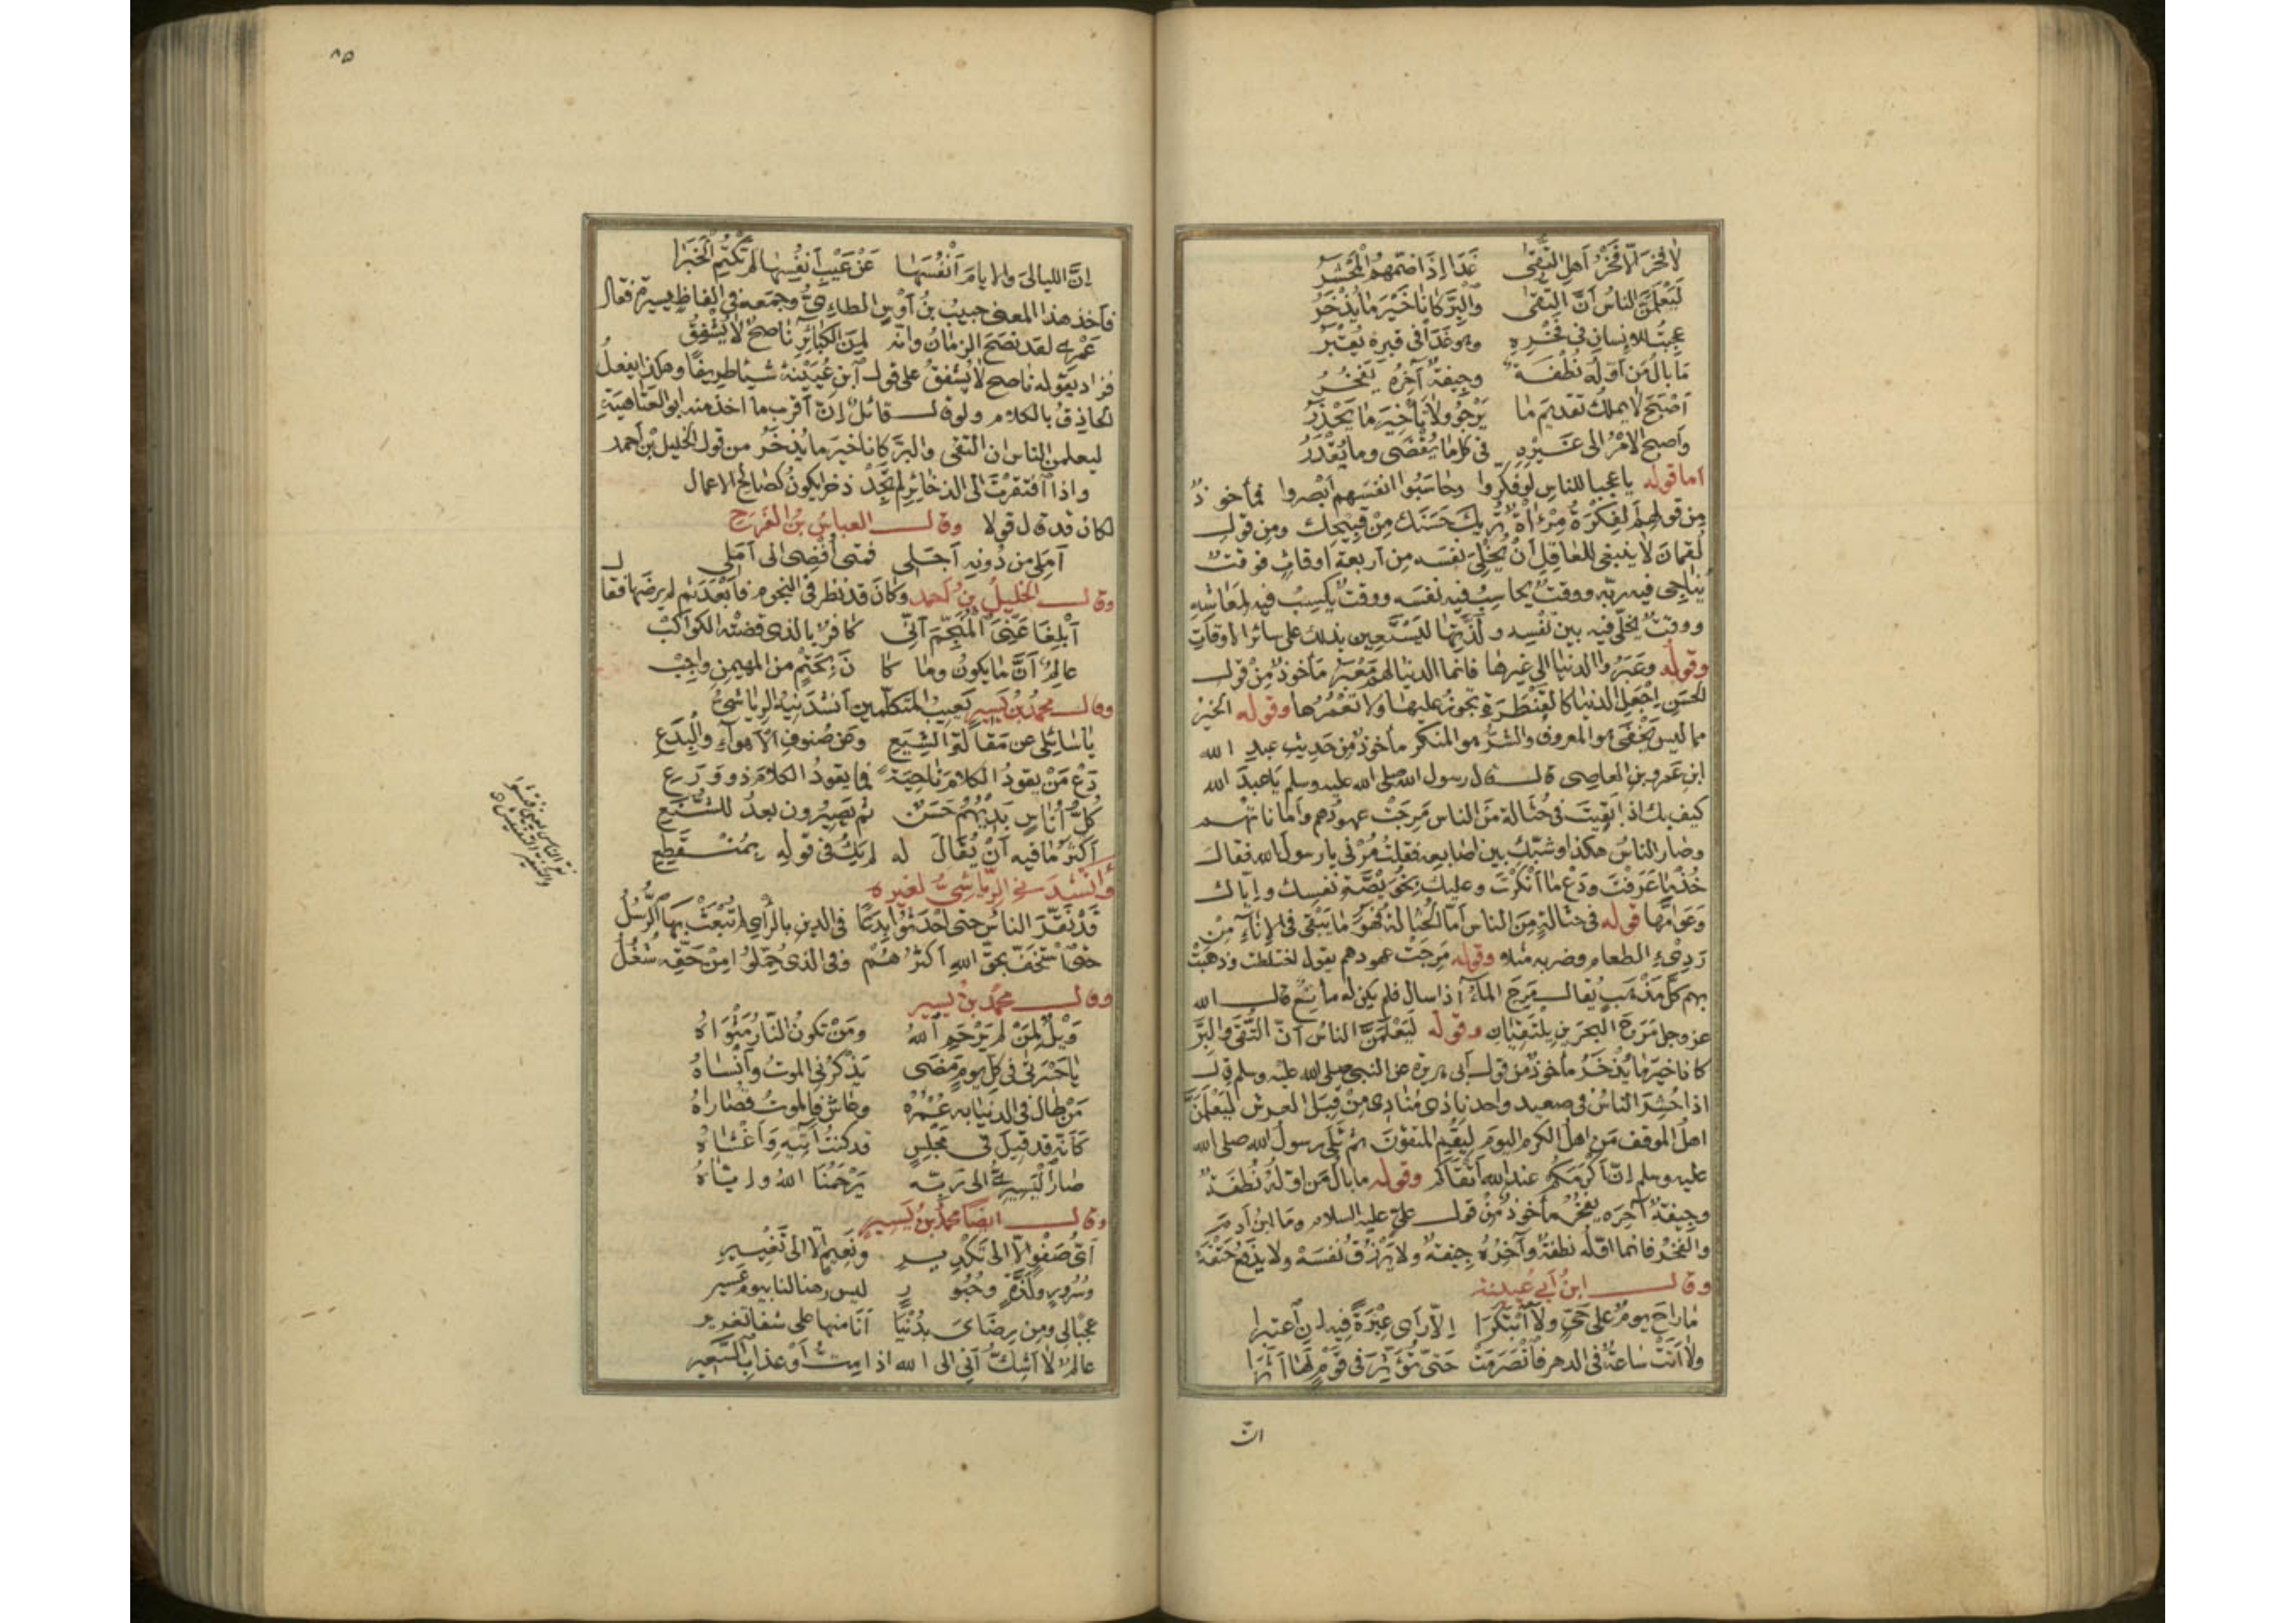 لا فخر الا فخر اهل التقى غدا اذا ضمهم المحشر
ليعلمن الناس ان التقى والبر كانا خير ما يذخر
عجبت للانسان في فخره وهو غدا في قبره يقبر
ما بال من اوله نطفة وجيفة آخره يفخر
اصبح لا يملك تقديم ما يرجو ولا تأخير ما يحذر
واصبح الامر الى غيره في كل ما يقضى وما يقدر
اما قوله يا عجبا للناس لو فكروا وحاسبوا انفسهم ابصروا فمأخوذ
من قولهم الفكرة مرءاة تريك حسنك من قبيحك ومن قول
لقمان لا ينبغي للعاقل ان يخلي نفسه من اربعة اوقات فوقت
يناجي فيه ربه ووقت يحاسب فيه نفسه ووقت يكسب فيه لمعاشه
ووقت يخلي فيه بين نفسه ولذتها ليستعين بذلك على سائر الاوقات
وقوله وعبروا الدنيا الى غيرها فانما الدنيا لهم معبر مأخوذ من قول
الحسن اجعل الدنيا كالقنطرة تجوز عليها ولا تعمرها وقوله الخير
مما ليس يخفى هو المعروف والشر هو المنكر مأخوذ من حديث عبد الله
ابن عمرو بن العاصى قال قال رسول الله صلى الله عليه وسلم يا عبد الله
كيف بك اذا بقيت في حثالة من الناس مرجت عهودهم واماناتهم
وصار الناس هكذا وشبك بين اصابعه فقلت مرني يا رسول الله فقال
خذ ما عرفت ودع ما انكرت وعليك بخويصة نفسك واياك
وعوامها قوله في حثالة من الناس اما الحثالة فهو ما يبقى في الاناء من
رديء الطعام وضربه مثلا وقوله مرجت عهودهم يقول اختلطت وذهبت
بهم كل مذهب يقال مرج الماء اذا سال فلم يكن له مانع قال الله
عز وجل مرج البحرين يلتقيان وقوله ليعلمن الناس ان التقى والبر
كانا خير ما يذخر مأخوذ من قول ابي هريرة عن النبي صلى الله عليه وسلم قال
اذا حشر الناس في صعيد واحد نادى مناد من قبل العرش ليعلمن
اهل الموقف من اهل الكرم اليوم ليقم المتقون ثم تلى رسول الله صلى الله
عليه وسلم ان اكرمكم عند الله اتقاكم وقوله ما بال من اوله نطفة
وجيفة آخره يفخر مأخوذ من قول علي عليه السلام وما ابن آدم
والفخر فانما اوله نطفة وآخره جيفة ولا يرزق نفسه ولا يدفع حتفه
وقال ابن ابي عيينة
ما راح يوم على حي ولا ابتكرا الا رأى عبرة فيه ان اعتبرا
ولا اتت ساعة في الدهر فانصرمت حتى تؤثر في قوم لها اثرا
ان
٨٥
ان الليالي والايام انفسها عن عيب انفسها لم تكتم الخبرا
فأخذ هذا المعنى حبيب بن اوس الطاءي وجمعه في الفاظ يسيرة فقال
عمري لقد نصح الزمان وانه لمن الكبائر ناصح لا يشفق
فزاد بقوله ناصح لا يشفق على قول ابن عيينة شيئا طريفا وهكذا يفعل
الحاذق بالكلام ولو قال قائل ان اقرب ما اخذ منه ابو العتاهية
ليعلمن الناس ان التقى والبر كانا خير ما يذخر من قول الخليل بن احمد
واذا افتقرت الى الذخائر لم تجد ذخرا يكون كصالح الاعمال
لكان قد قال قولا وقال العباس بن الفرج
املي من دونه اجلي فمتى افضي الى املي
وقال الخليل بن احمد وكان قد نظر في النجوم فابعد ثم لم يرضها فقال
ابلغا عني المنجم اني كافر بالذي قضته الكواكب
عالم ان ما يكون وما كا ن بحتم من المهيمن واجب
وقال محمد بن يسير يعيب المتكلمين انشدنيه الرياشي
يا سائلي عن مقالة الشيع وعن صنوف الاهواء والبدع
دع من يقود الكلام ناحية فما يقود الكلام ذو ورع
كل اناس بديهم حسن ثم يصيرون بعد للشنع
اكثر ما فيه ان يقال له لم يك في قوله بمنقطع
وانشدني الرياشي لغيره
قد نقر الناس حتى احدثوا بدعا في الدين بالرأي لم تبعث بها الرسل
حتى استخف بحق الله اكثرهم وفي الذي حملوا من حقه شغل
وقال محمد بن يسير
ويل لمن لم يرحم الله ومن تكون النار مثواه
يا حسرتي في كل يوم مضى يذكرني الموت وانساه
من طال في الدنيا به عمره وعاش فالموت قصاراه
كأنه قد قيل في مجلس قد كنت آتيه واغشاه
صار اليسيري الى ربه يرحمنا الله واياه
وقال ايضا محمد بن يسير
اي صفو الا الى تكدير ونعيم الا الى تغيير
وسرور ولذة وحبور ليس رهنا لنا بيوم عسير
عجبا لي ومن رضاي بدنيا انا منها على شفا تغرير
عالم لا اشك اني الى الله اذا مت او عذاب السعير